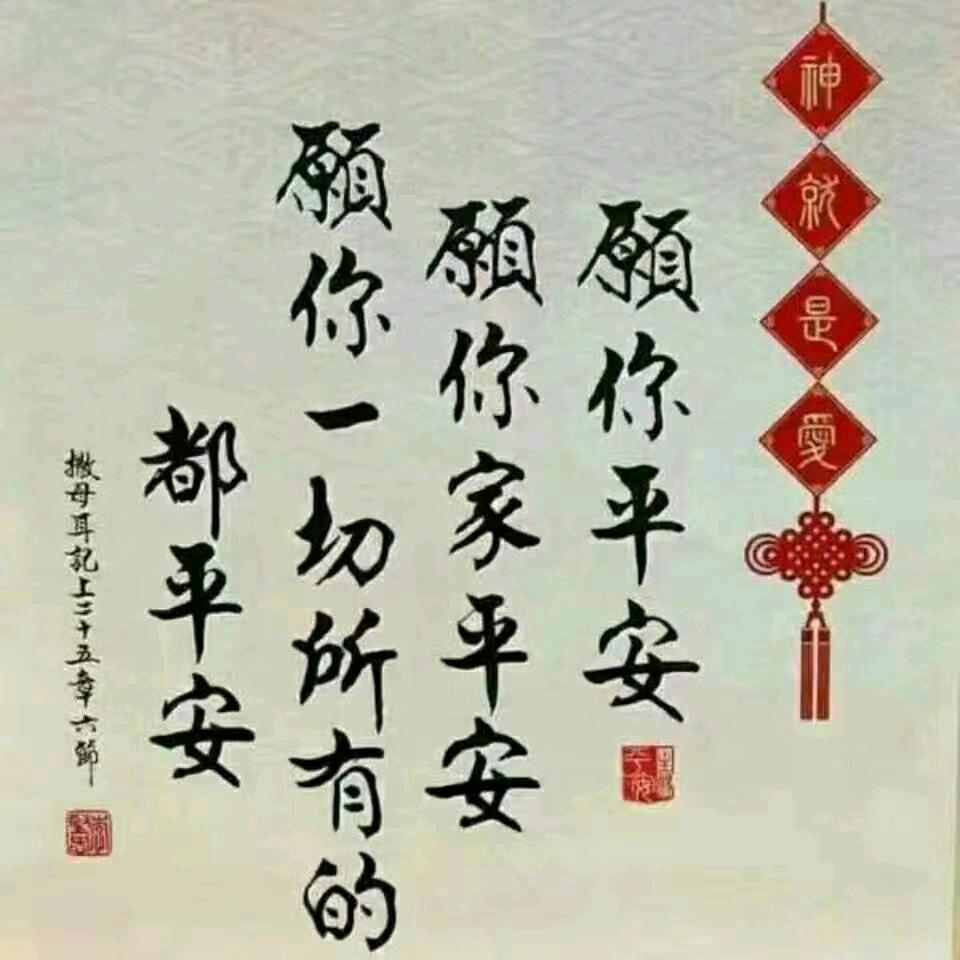 神就是愛
願你平安
願你家平安
願你一切所有的
都平安
撒母耳記上二十五章六節